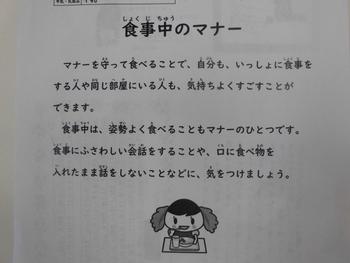 食事中のマナー
マナーを守って食べることで、自分も、いっしょに食事を
する人や同じ部屋にいる人も、気持ちよくすごすことが
できます。
食事中は、姿勢よく食べることもマナーのひとつです。
食事にふさわしい会話をすることや、口に食べ物を
入れたまま話をしないことなどに、気をつけましょう。